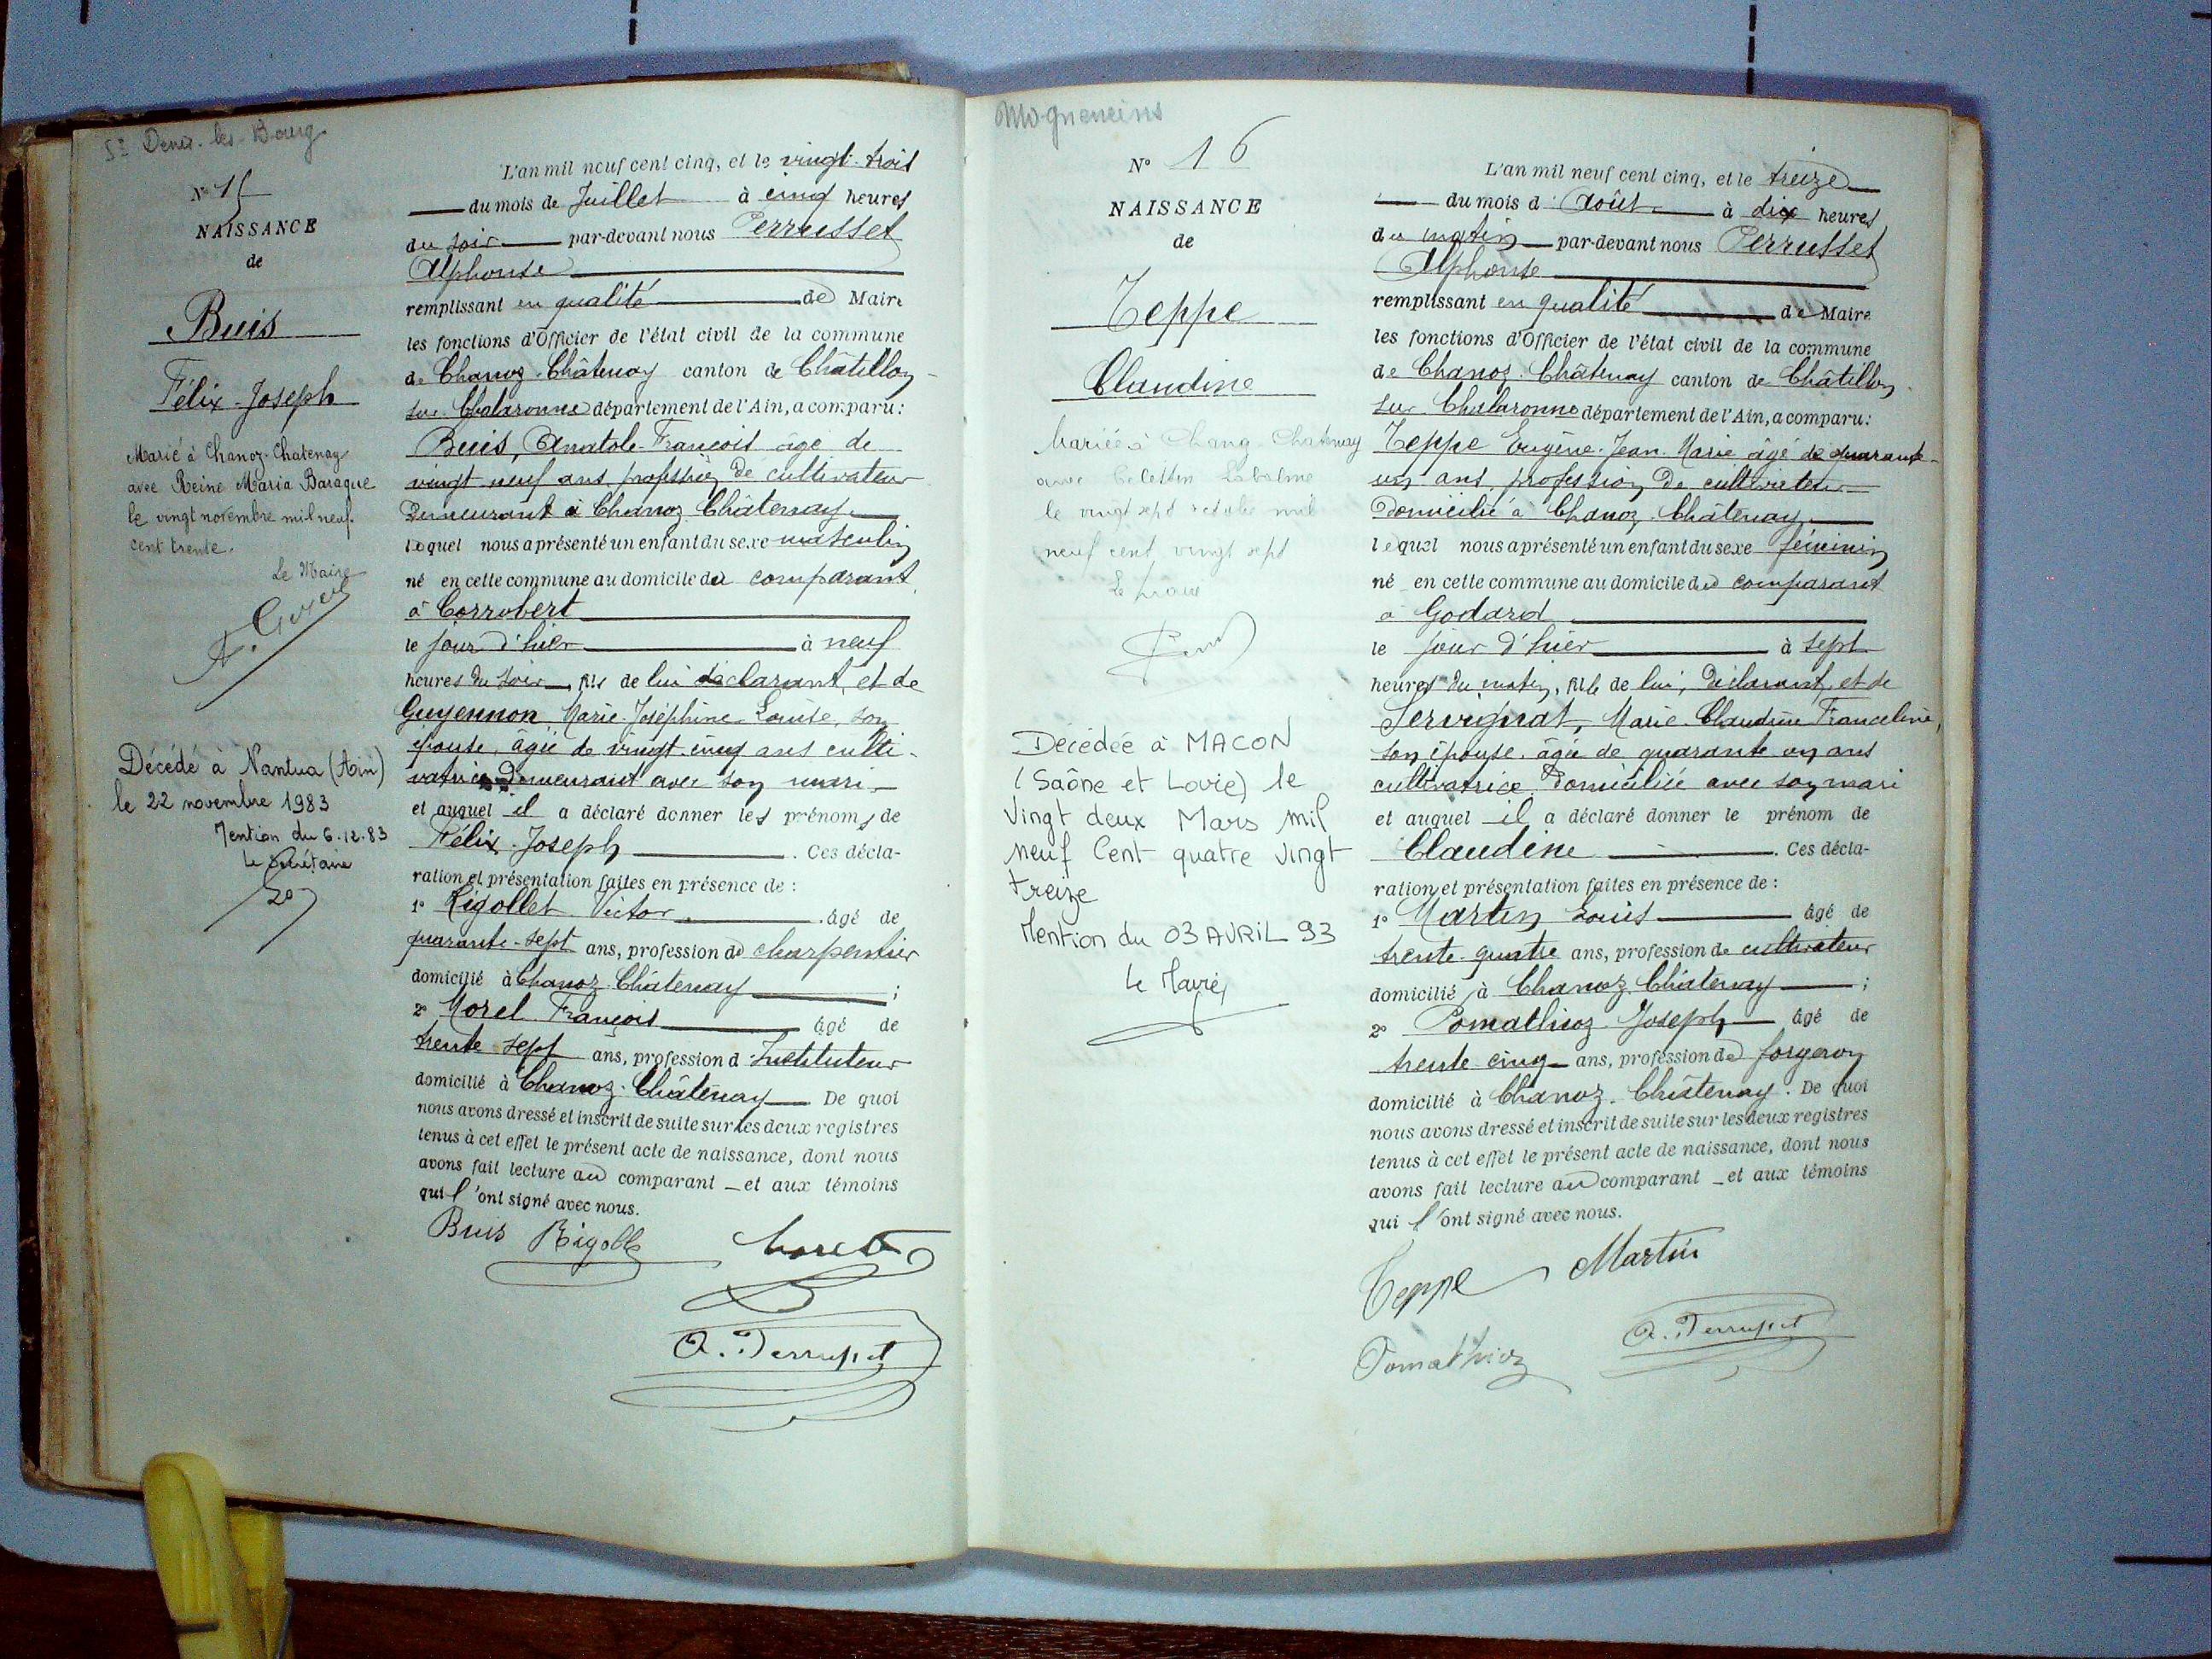 St Denis-les-Bourg
N° 15
NAISSANCE
de
Buis
Félix-Joseph
Marié à Chanoz-Chatenay
avec Reine Maria Baraque
le vingt novembre mil neuf
cent trente.
Le Maire
Décédé à Nantua (Ain)
le 22 novembre 1983
Mention du 6.12.83
Le Secrétaire
L'an mil neuf cent cinq, et le vingt-trois
du mois de Juillet à cinq heures
du soir par-devant nous Perrusset
Alphonse
remplissant en qualité de Maire
les fonctions d'Officier de l'état civil de la commune
de Chanoz-Châtenay canton de Châtillon-
sur-Chalaronne département de l'Ain, a comparu:
Buis, Anatole-François âgé de
vingt neuf ans, profession de cultivateur
Demeurant à Chanoz Châtenay
lequel nous a présenté un enfant du sexe masculin
né en cette commune au domicile du comparant
à Corrobert
le jour d'hier à neuf
heures du soir, fils de lui déclarant, et de
Guyennon Marie-Joséphine-Louise, son
épouse, âgée de vingt cinq ans culti-
vatrice Demeurant avec son mari
et auquel il a déclaré donner les prénoms de
Félix-Joseph. Ces décla-
ration et présentation faites en présence de:
1° Rigollet Victor âgé de
quarante-sept ans, profession de charpentier
domicilié à Chanoz Châtenay;
2° Morel François âgé de
trente sept ans, profession d'Instituteur
domicilié à Chanoz-Châtenay De quoi
nous avons dressé et inscrit de suite sur les deux registres
tenus à cet effet le présent acte de naissance, dont nous
avons fait lecture au comparant et aux témoins
qui l'ont signé avec nous.
Buis Rigollet Morel
A. Perrusset
Mogneneins
N° 16
NAISSANCE
de
Teppe
Claudine
Mariée à Chanoz-Chatenay
avec Célestin Labalme
le vingt sept octobre mil
neuf cent vingt sept
Le Maire
Décédée à MACON
(Saône et Loire) le
Vingt deux Mars mil
neuf Cent quatre vingt
treize
Mention du 03 AVRIL 93
Le Maire,
L'an mil neuf cent cinq, et le treize
du mois d'Août à dix heures
du matin par-devant nous Perrusset
Alphonse
remplissant en qualité de Maire
les fonctions d'Officier de l'état civil de la commune
de Chanoz-Châtenay canton de Châtillon
sur Chalaronne département de l'Ain, a comparu:
Teppe Eugène-Jean-Marie âgé de quarante-
un ans, profession de cultivateur
Domicilié à Chanoz-Châtenay
lequel nous a présenté un enfant du sexe féminin
né en cette commune au domicile du comparant
à Godard
le jour d'hier à sept
heures du matin, fille de lui, Déclarant, et de
Servignat, Marie-Claudine Franceline,
son épouse, âgée de quarante un ans
cultivatrice Domiciliée avec son mari
et auquel il a déclaré donner le prénom de
Claudine. Ces décla-
ration et présentation faites en présence de:
1° Martin Louis âgé de
trente-quatre ans, profession de cultivateur
domicilié à Chanoz-Châtenay;
2° Pomathioz Joseph âgé de
trente cinq ans, profession de forgeron
domicilié à Chanoz-Châtenay. De quoi
nous avons dressé et inscrit de suite sur les deux registres
tenus à cet effet le présent acte de naissance, dont nous
avons fait lecture au comparant et aux témoins
qui l'ont signé avec nous.
Teppe Martin
Pomathioz A. Perrusset